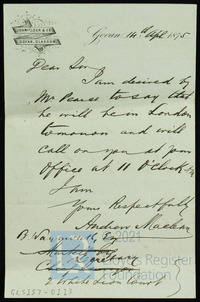 Govan, 14th Apl 1875
Dear Sir
I am desired by
Mr Pearce to say that
he will be in London
tomorrow and will
call on you at your
Office at 11 O'Clock
I am
Yours Respectfully
Andrew Maclean
B. Waymouth Esq
2 White Lion Court
© 2021
Lloyd's Register
Foundation